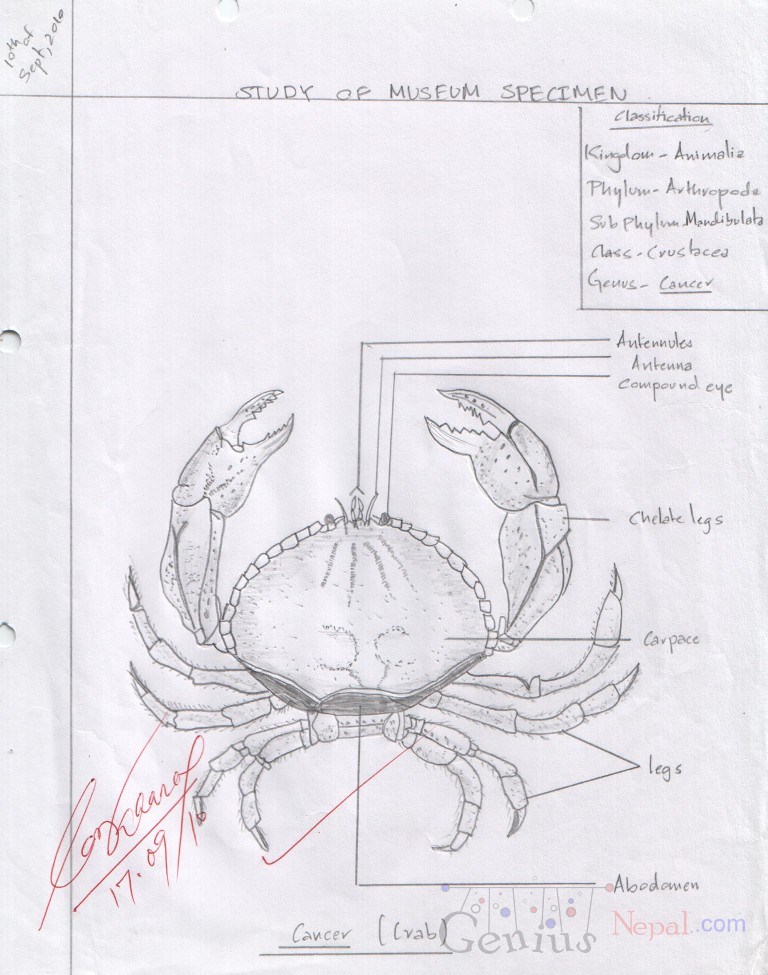 10th of
Sept, 2010
STUDY OF MUSEUM SPECIMEN
Classification
Kingdom - Animalia
Phylum - Arthropoda
Sub Phylum Mandibulata
Class - Crustacea
Genus - Cancer
Antennules
Antenna
Compound eye
Chelate legs
Carpace
legs
Abodomen
17.09/10
Cancer (Crab)
Genius Nepal.com